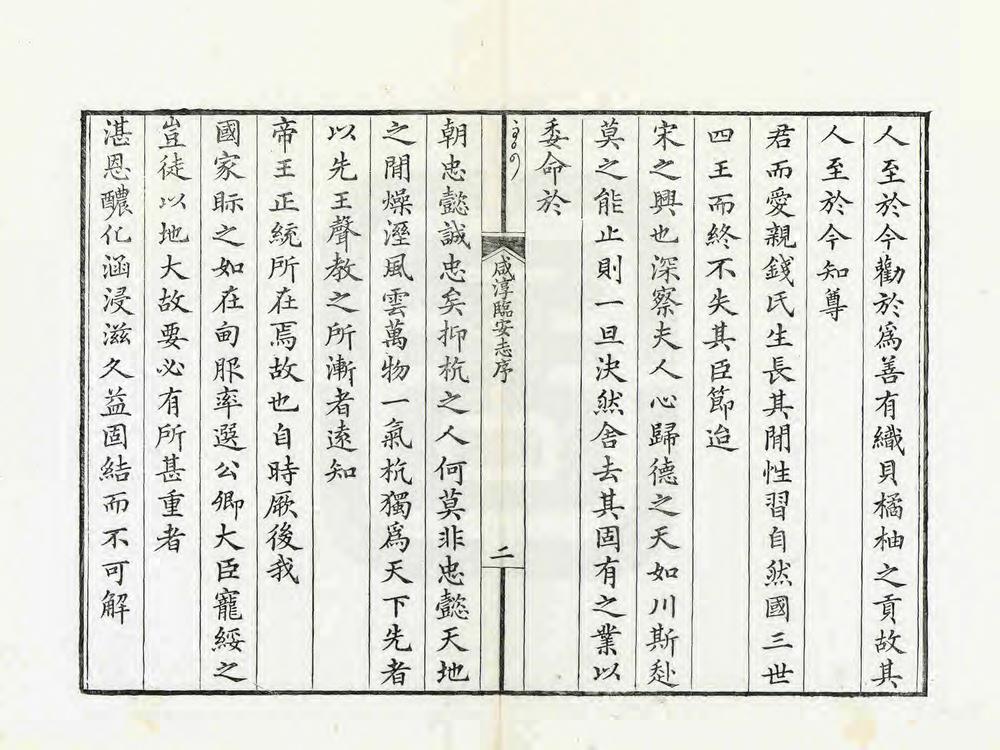 人至於今勸於為善有織貝橘柚之貢故其
人至於今知尊
君而愛親錢氏生長其閒性習自然國三世
四王而終不失其臣節迨
宋之興也深察夫人心歸德之天如川斯赴
莫之能止則一旦決然舍去其固有之業以
委命於
咸淳臨安志序
二
朝忠懿誠忠矣抑杭之人何莫非忠懿天地
之閒燥溼風雲萬物一氣杭獨為天下先者
以先王聲教之所漸者遠知
帝王正統所在焉故也自時厥後我
國家眎之如在甸服率選公卿大臣寵綏之
豈徒以地大故要必有所甚重者
湛恩醲化涵浸滋久益固結而不可解